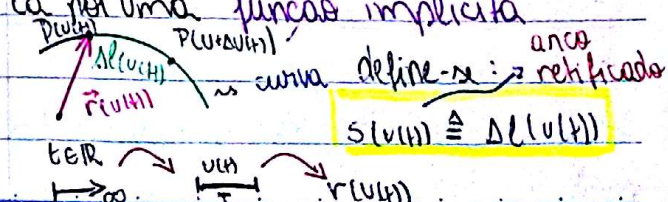 ca por uma função implícita
P(U(t)) P(U+ΔU(t))
Δl(U(t)) ~> curva define-se: arco retificado
r⃗(U(t))
S(U(t)) ≜ Δl(U(t))
t∈ℝ U(t) r(U(t))
∞ I